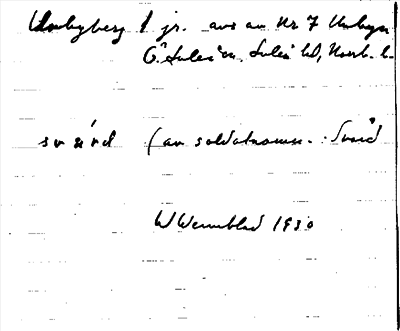 Unbyberg 1 jr. avs av Nr 7 Unbyn
Ö. Luleå sn. Luleå td, Norrb. l.
svä́rd (av soldatnamn. Svärd
W Wennblad 1930